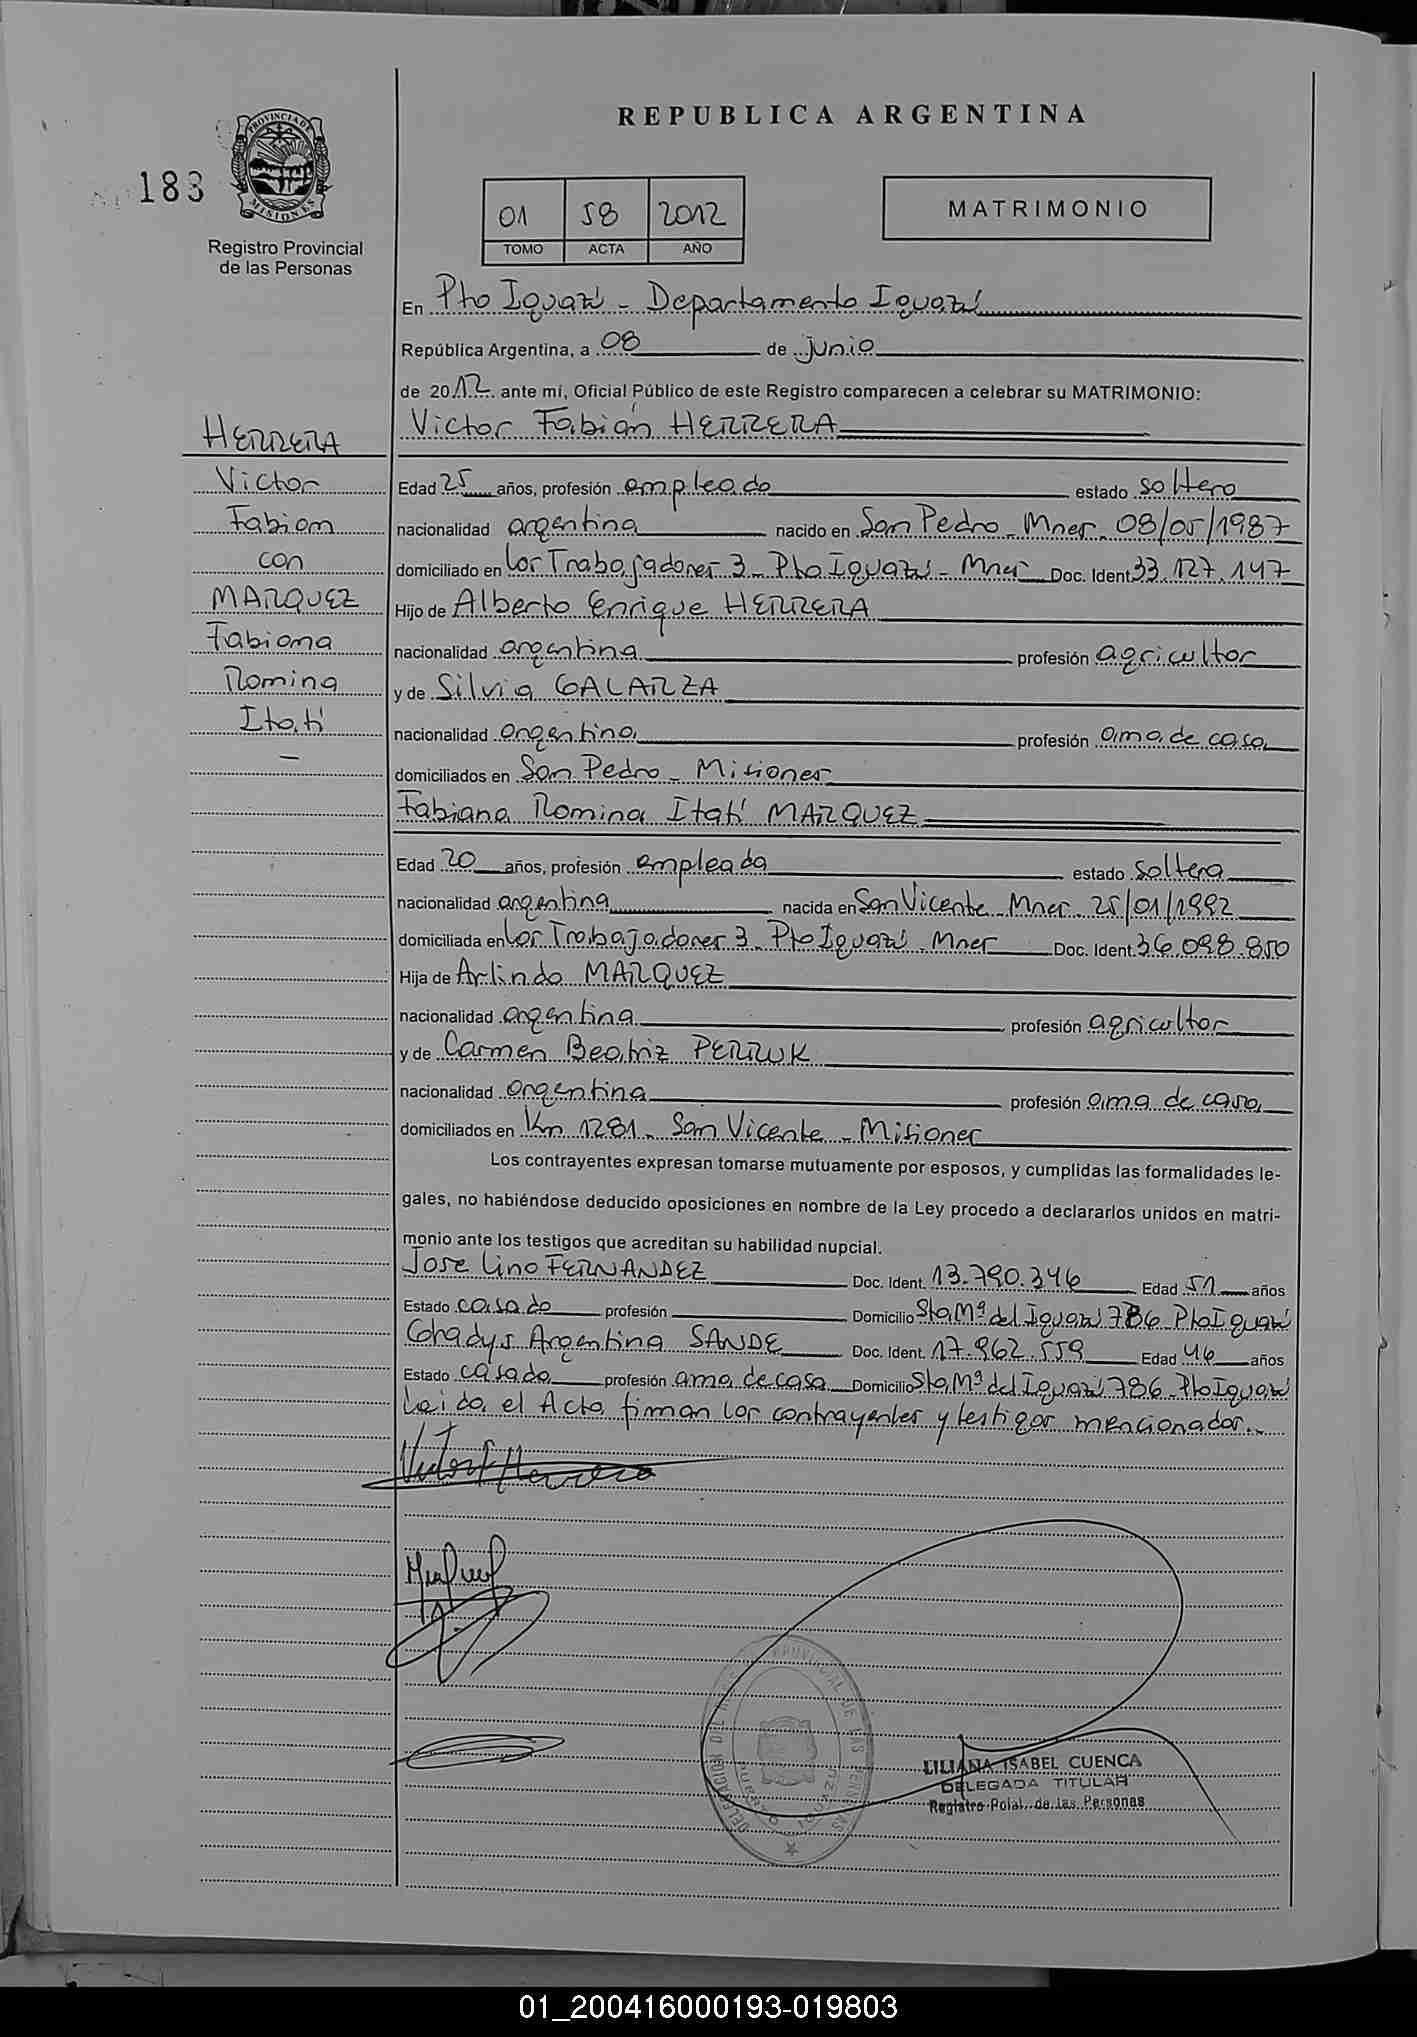 REPUBLICA ARGENTINA
183
PROVINCIA DE
MISIONES
Registro Provincial
de las Personas
01 58 2012
TOMO ACTA AÑO
MATRIMONIO
En Pto Iguazú - Departamento Iguazú
República Argentina, a 08 de junio
de 2012 ante mí, Oficial Público de este Registro comparecen a celebrar su MATRIMONIO:
HERRERA
Victor
Fabian
con
MARQUEZ
Fabiana
Romina
Itatí
-
Victor Fabián HERRERA
Edad 25 años, profesión empleado estado soltero
nacionalidad argentina nacido en San Pedro - Mnes - 08/05/1987
domiciliado en los Trabajadores 3 - Pto Iguazú - Mnes Doc. Ident. 33.127.147
Hijo de Alberto Enrique HERRERA
nacionalidad argentina profesión agricultor
y de Silvia GALARZA
nacionalidad argentina profesión ama de casa
domiciliados en San Pedro - Misiones
Fabiana Romina Itatí MARQUEZ
Edad 20 años, profesión empleada estado soltera
nacionalidad argentina nacida en San Vicente - Mnes - 25/01/1992
domiciliada en los Trabajadores 3 - Pto Iguazú - Mnes Doc. Ident. 36.098.850
Hija de Arlindo MARQUEZ
nacionalidad argentina profesión agricultor
y de Carmen Beatriz PERRUK
nacionalidad argentina profesión ama de casa
domiciliados en Km 1281 - San Vicente - Misiones
Los contrayentes expresan tomarse mutuamente por esposos, y cumplidas las formalidades le-
gales, no habiéndose deducido oposiciones en nombre de la Ley procedo a declararlos unidos en matri-
monio ante los testigos que acreditan su habilidad nupcial.
Jose Lino FERNANDEZ Doc. Ident. 13.790.346 Edad 51 años
Estado casado profesión Domicilio Sta Mª del Iguazú 786 Pto Iguazú
Ghadys Argentina SANDE Doc. Ident. 17.962.559 Edad 46 años
Estado casada profesión ama de casa Domicilio Sta Mª del Iguazú 786 - Pto Iguazú
Leida el Acta firman los contrayentes y testigos mencionados.-
Victor F Herrera
LILIANA ISABEL CUENCA
DELEGADA TITULAR
Registro Pcial. de las Personas
01_200416000193-019803